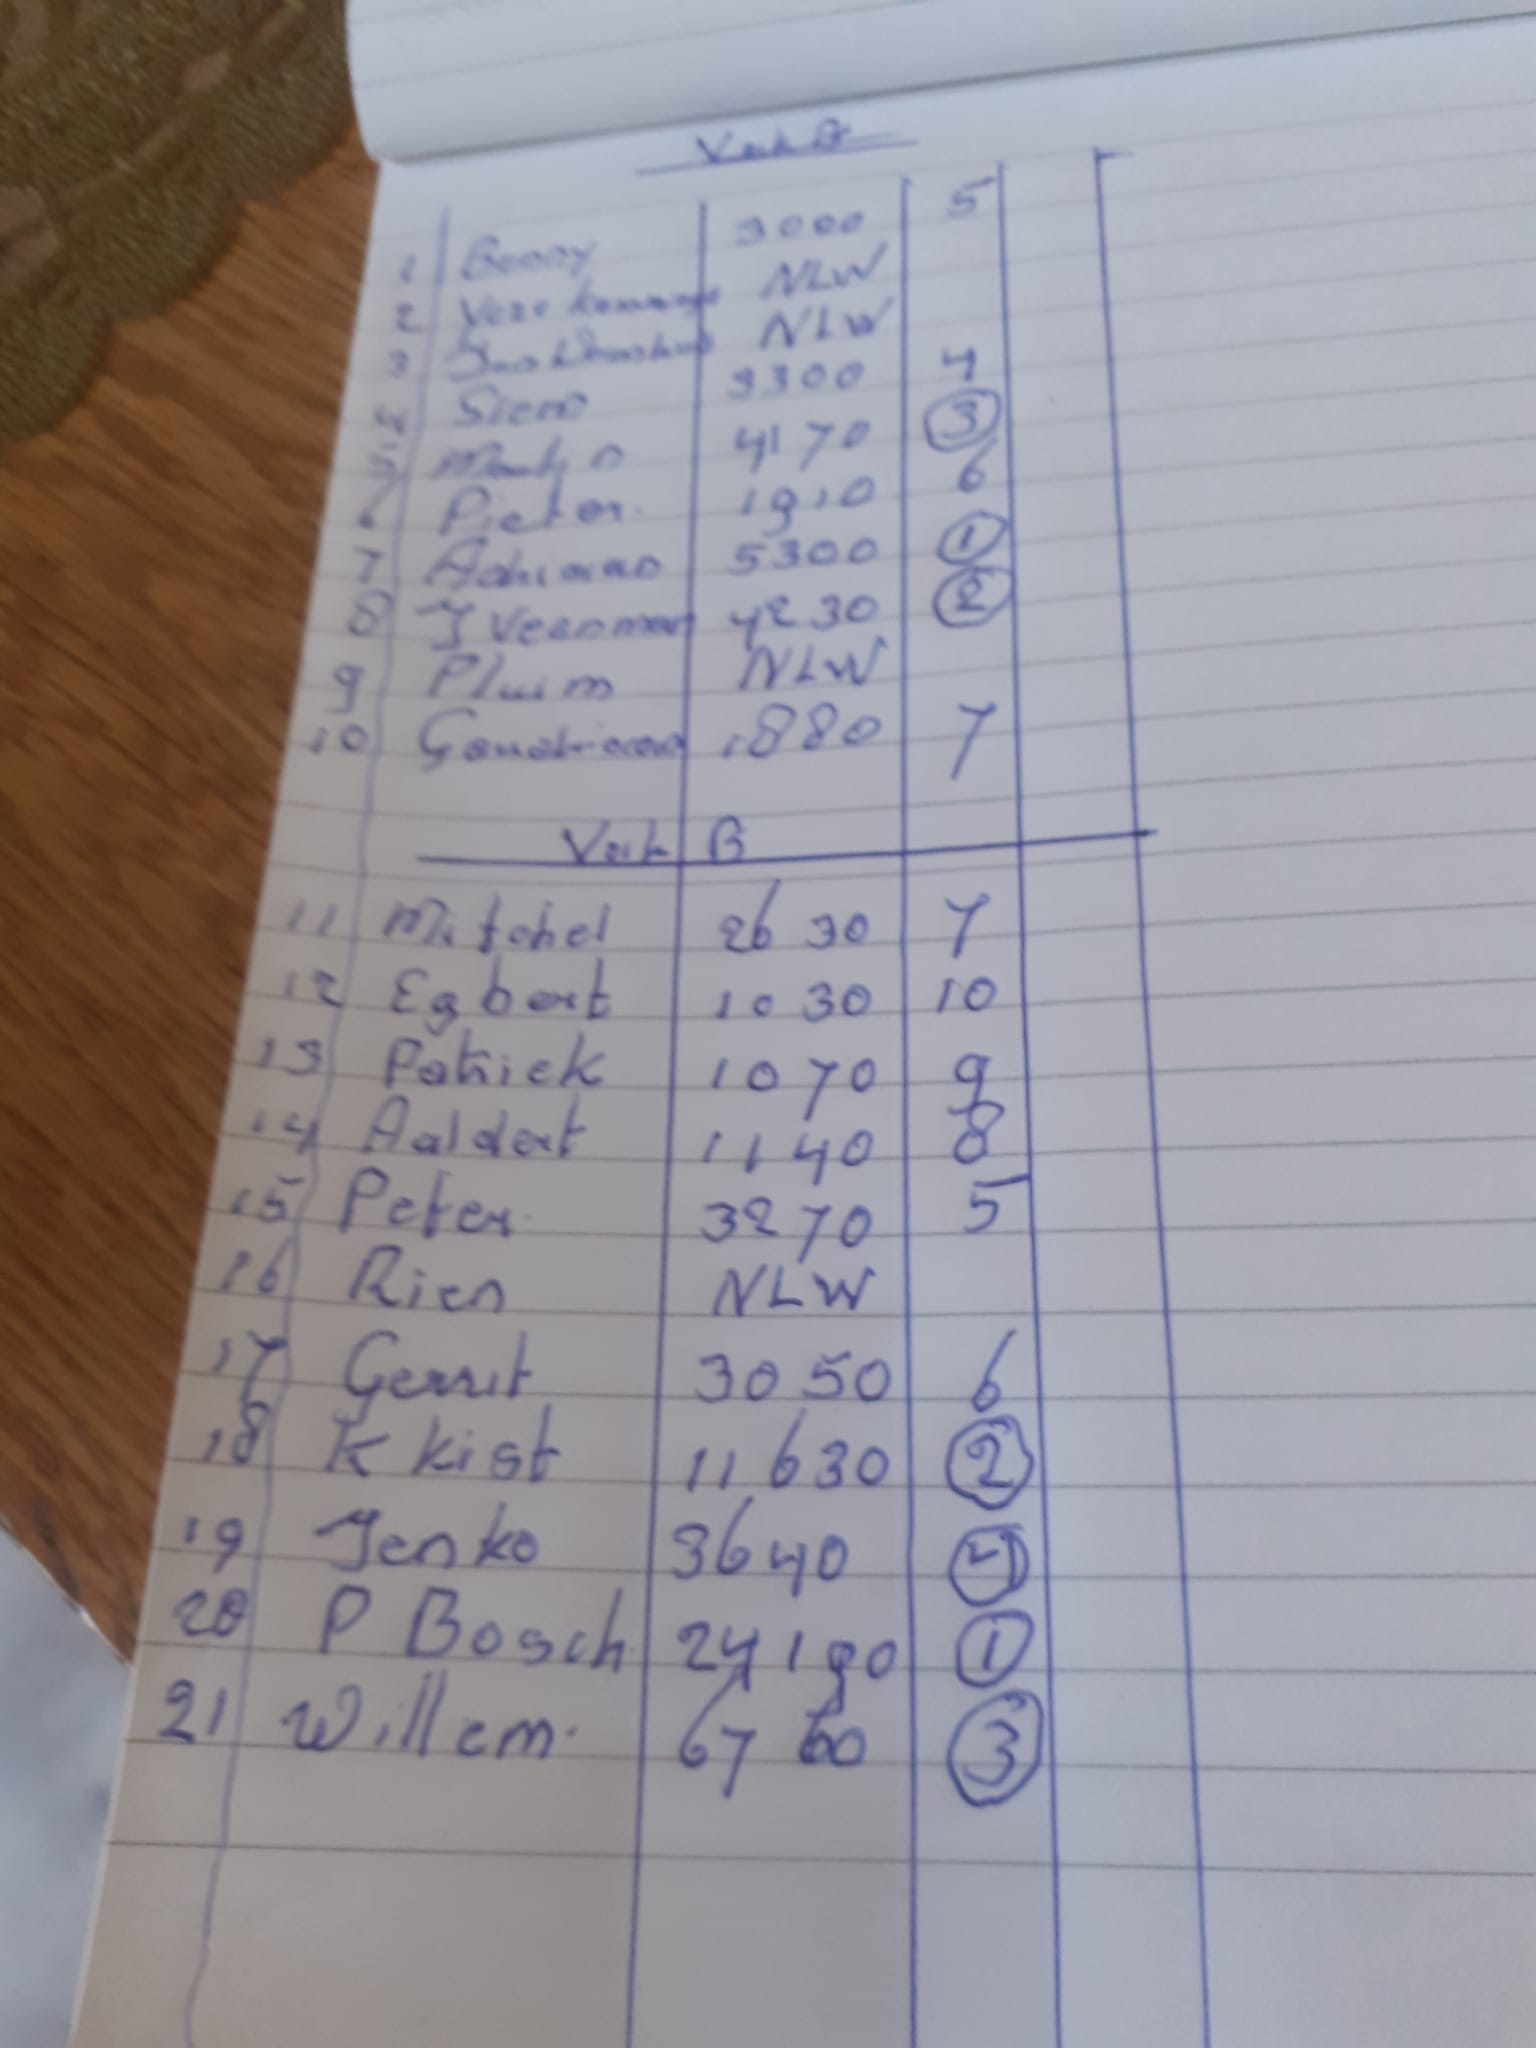 Vak A
1 Benny 3000 5
2 NLW
3 NLW
4 Siem 3300 4
5 Martijn 4170 3
6 Pieter. 1910 6
7 Adriaan 5300 1
8 J Veenman 4230 2
9 Pluim NLW
10 1880 7
Vak B
11 Mitchel 2630 7
12 Egbert 1030 10
13 Patrick 1070 9
14 Aaldert 1140 8
15 Peter. 3270 5
16 Rien NLW
17 Gerrit 3050 6
18 K kist 11630 2
19 Jenko 3640 4
20 P Bosch 24190 1
21 Willem. 6760 3